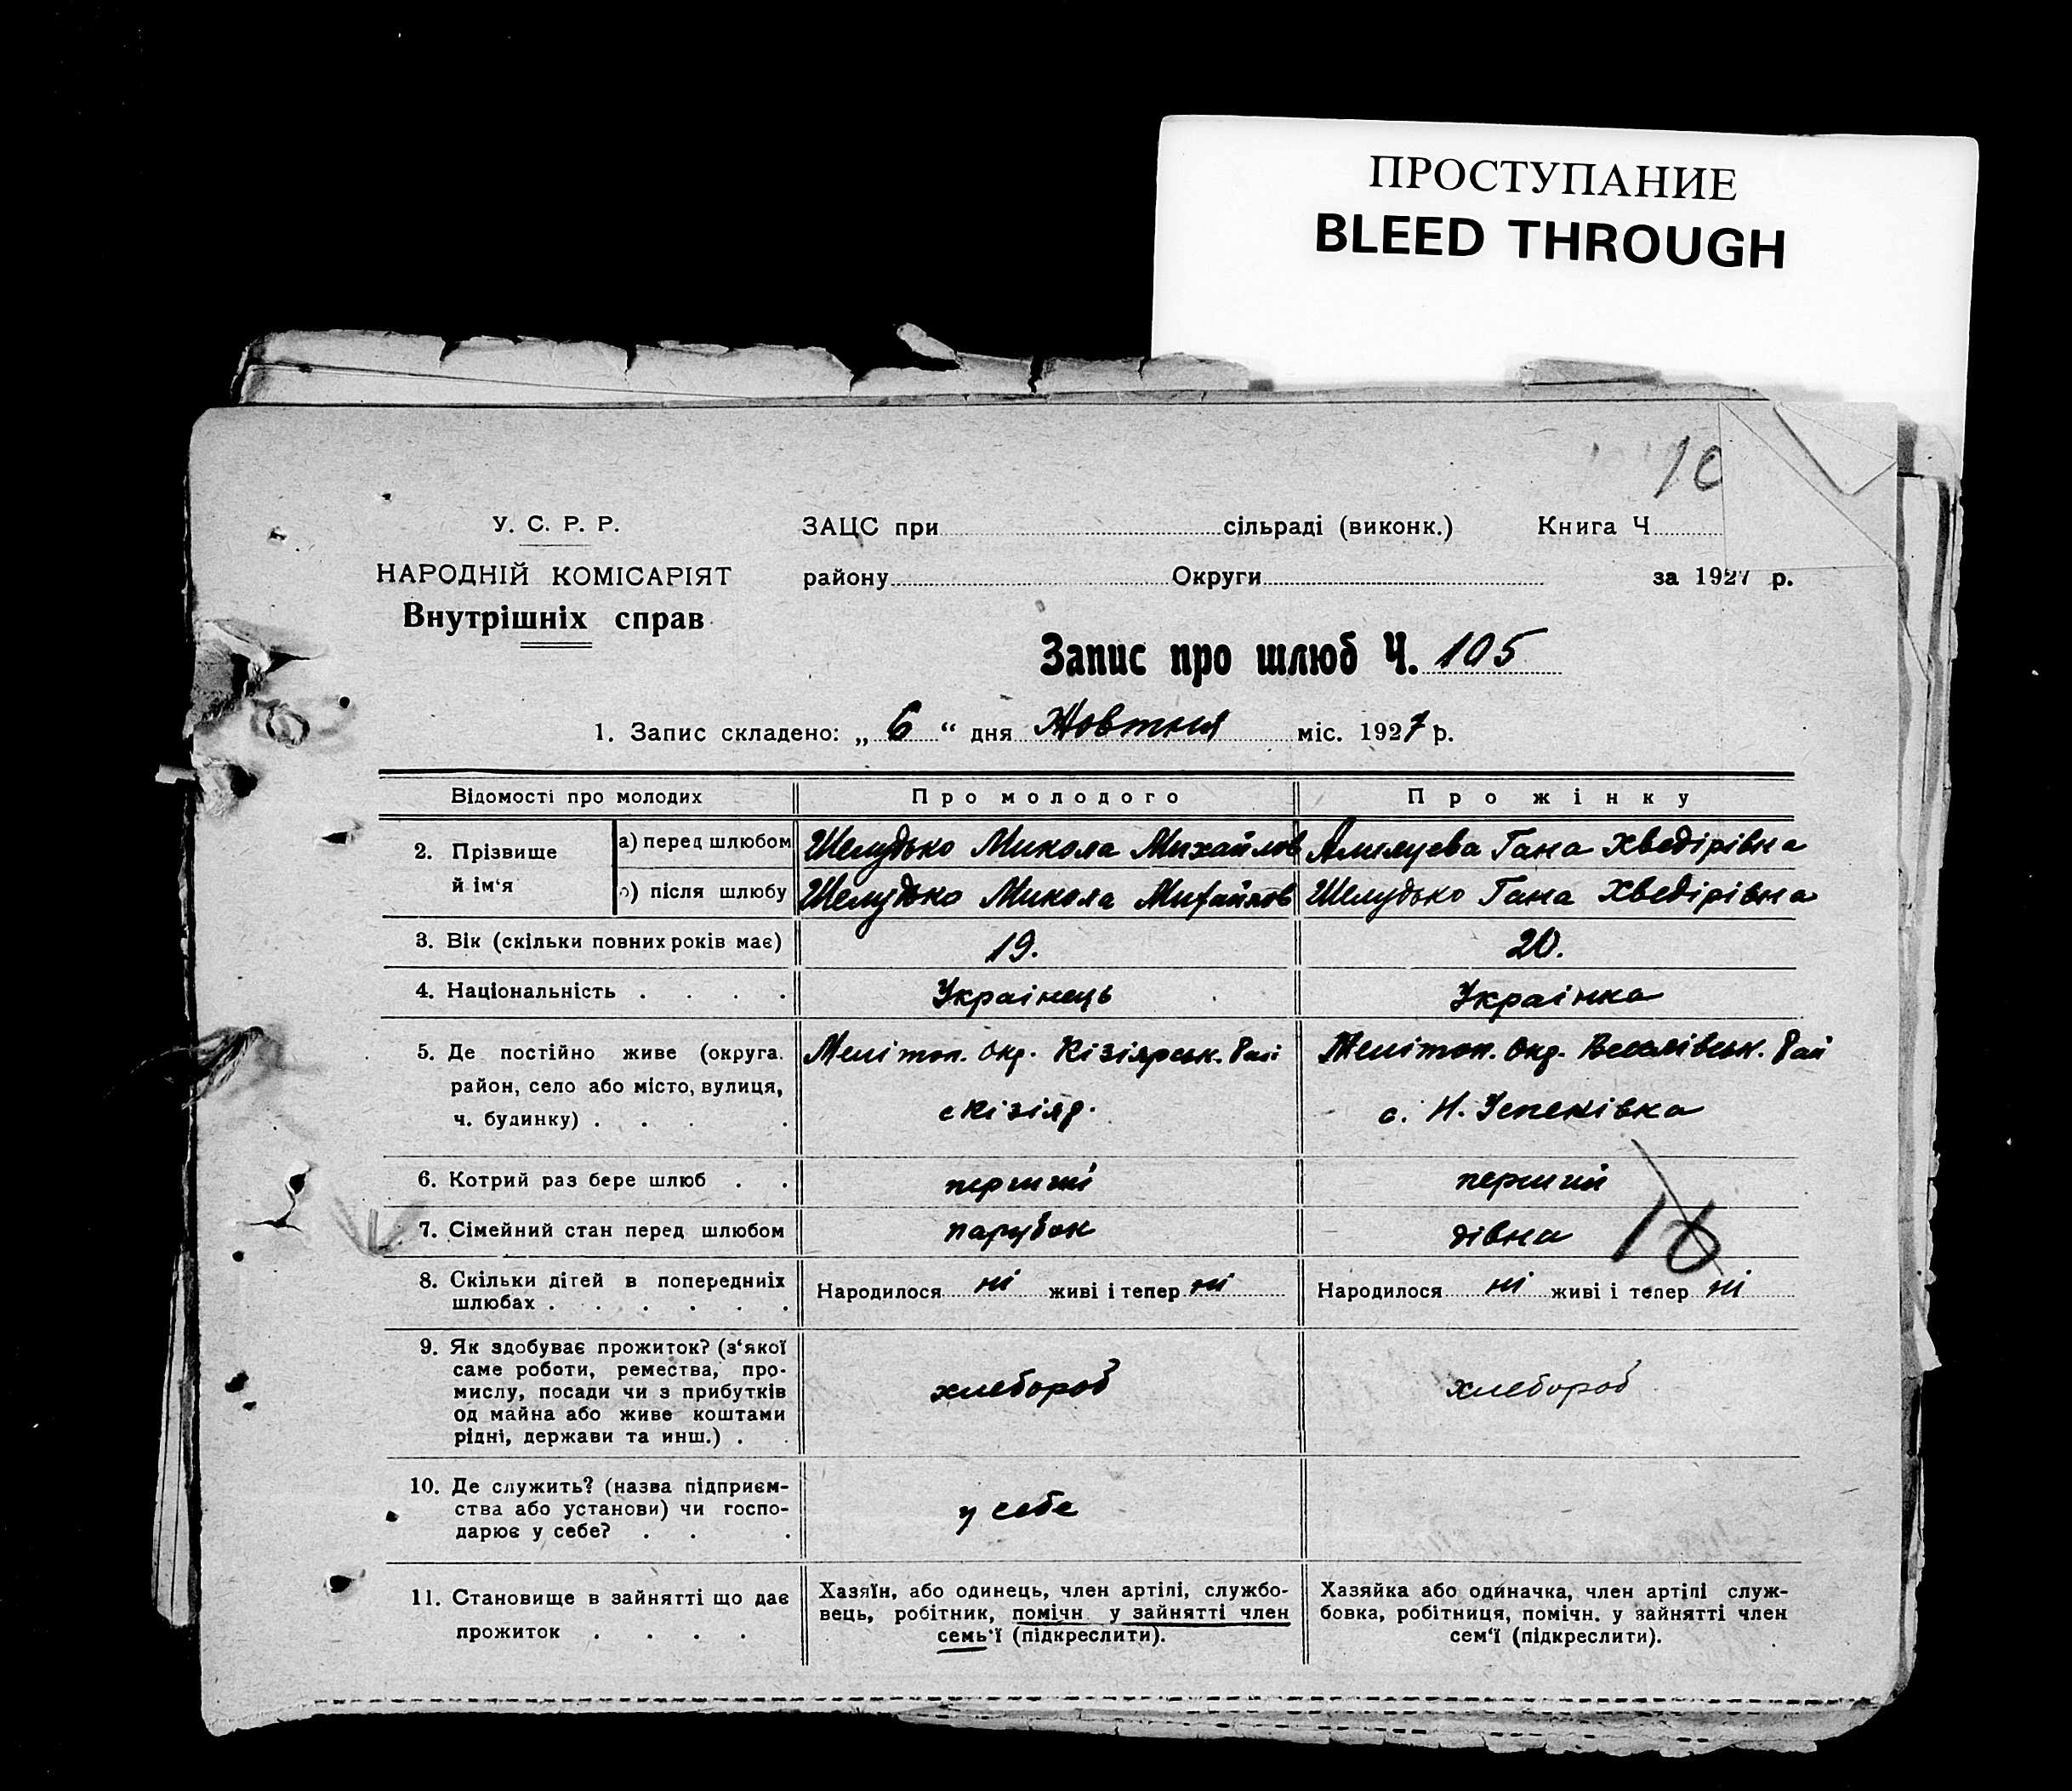 ПРОСТУПАНИЕ
BLEED THROUGH
10
У. С. Р. Р.
НАРОДНІЙ КОМІСАРІЯТ
Внутрішніх справ
ЗАЦС при сільраді (виконк.) Книга Ч
району Округи за 1927 р.
Запис про шлюб Ч. 105
1. Запис складено: „ 6 “ дня Жовтня міс. 1927 р.
Відомості про молодих Про молодого Про жінку
2. Прізвище й ім‘я
а) перед шлюбом Шелудько Микола Михайлов Гана Хведірівна
б) після шлюбу Шелудько Микола Михайлов Шелудько Гана Хведірівна
3. Вік (скільки повних років має) 19. 20.
4. Національність . . . . Українець Українка
5. Де постійно живе (округа. Меліտոп. Окр. Кізіярськ. Рай Меліտոп. Окр. Веселівськ. Рай
район, село або місто, вулиця, с Кізіяр. с. Н. Успенівка
ч. будинку) . . . .
6. Котрий раз бере шлюб . . перший перший
7. Сімейний стан перед шлюбом парубок дівка
16
8. Скільки дітей в попередниіх Народилося ні живі і тепер ні Народилося ні живі і тепер ні
шлюбах . . . . . .
9. Як здобуває прожиток? (з‘якої
саме роботи, ремества, про-
мислу, посади чи з прибутків хлебороб хлебороб
од майна або живе коштами
рідні, держави та инш.) . .
10. Де служить? (назва підприєм-
ства або установи) чи госпо- у себе
дарює у себе? . . .
11. Становище в зайнятті що дає
прожиток . . . .
Хазяїн, або одинець, член артілі, службо-
вець, робітник, помічн у зайнятті член
семь‘ї (підкреслити).
Хазяйка або одиначка, член артілі служ-
бовка, робітниця, помічн. у зайнятті член
сем‘ї (підкреслити).